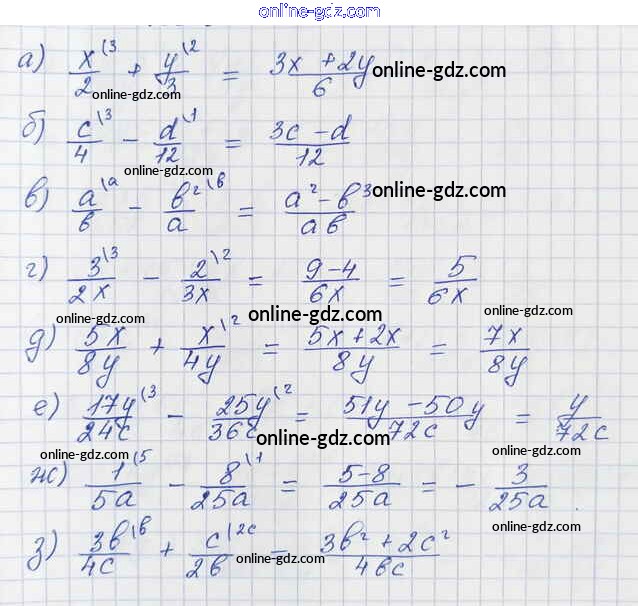 online-gdz.com
а) x/2 \3 + y/3 \2 = 3x + 2y/6 online-gdz.com
online-gdz.com
б) c/4 \3 − d/12 \1 = 3c − d/12
online-gdz.com
online-gdz.com
в) a/в \a − в²/a \в = a² − в³/aв online-gdz.com
г) 3/2x \3 − 2/3x \2 = 9 − 4/6x = 5/6x
online-gdz.com online-gdz.com online-gdz.com
д) 5x/8y + x/4y \2 = 5x + 2x/8y = 7x/8y
е) 17y/24c \3 − 25y/36c \2 = 51y − 50y/72c = y/72c
online-gdz.com online-gdz.com online-gdz.com
ж) 1/5a \5 − 8/25a \1 = 5 − 8/25a = − 3/25a.
online-gdz.com
з) 3в/4c \в + c/2в \2c = 3в² + 2c²/4вc
online-gdz.com online-gdz.com